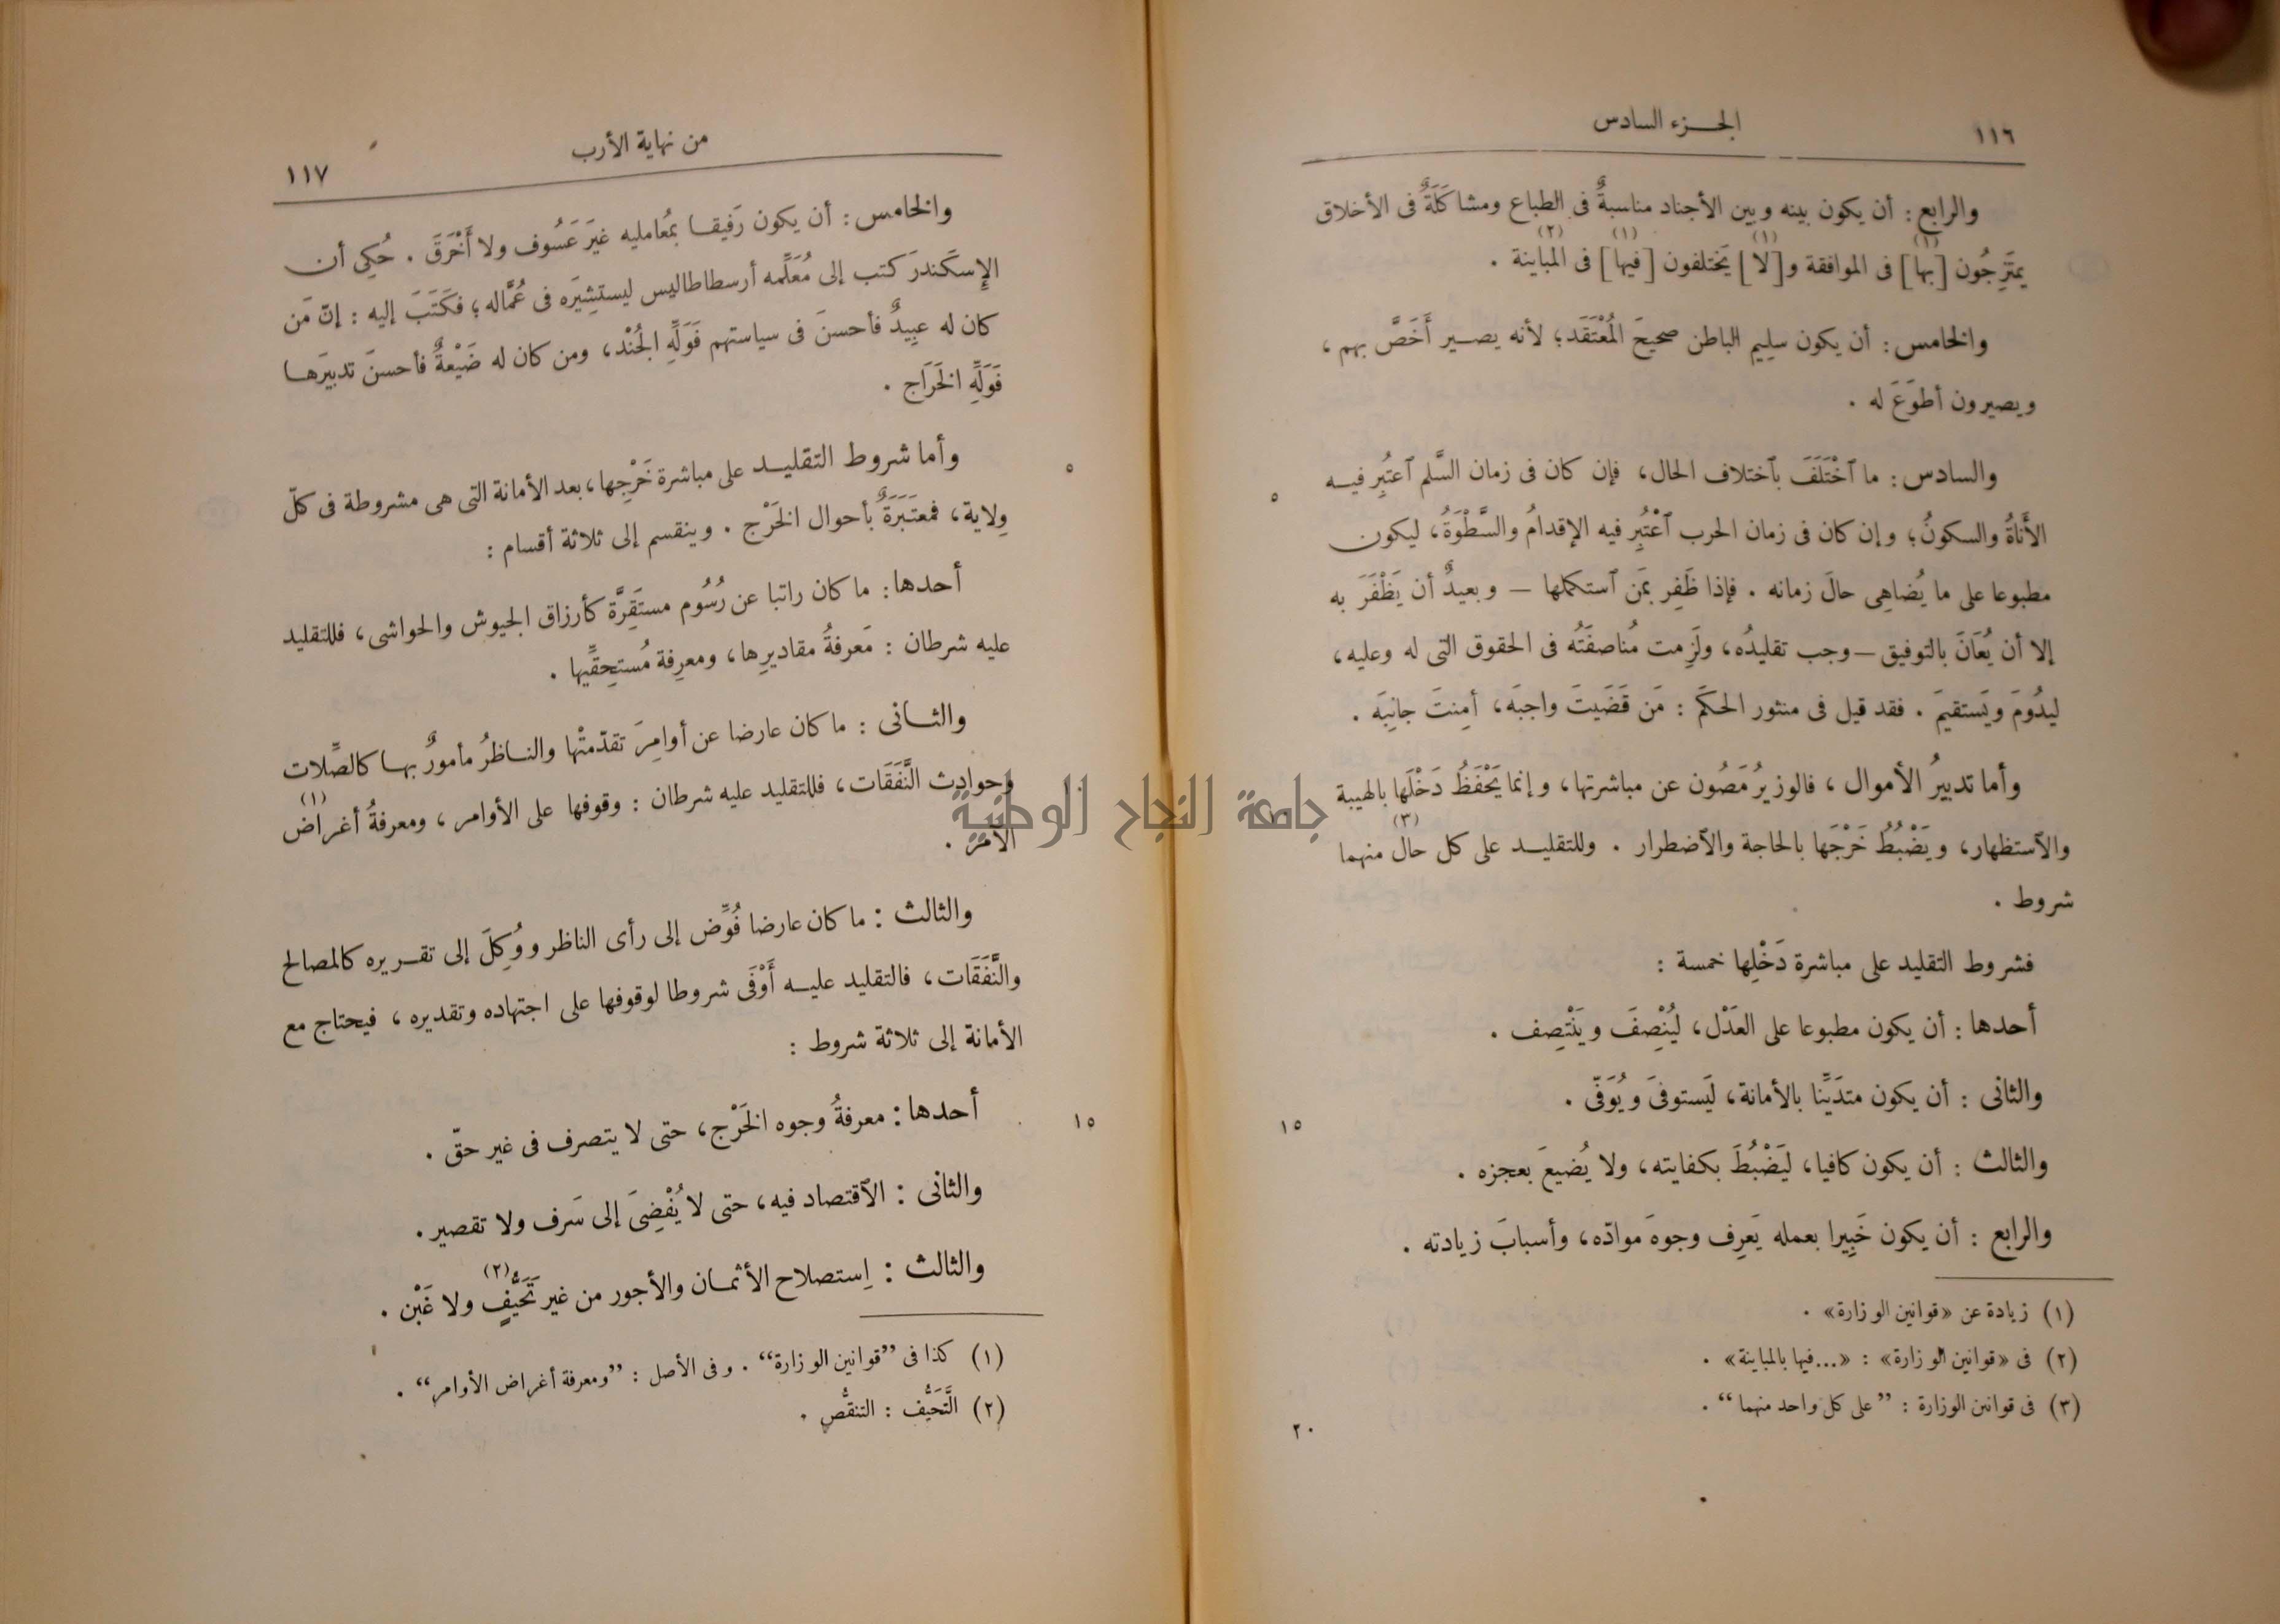 ١١٦
الجـزء السادس
والرابع : أن يكون بينه وبين الأجناد مناسبةٌ فى الطباع ومشاكَلَةٌ فى الأخلاق
يمتَزِجُون [بها](١) فى الموافقة و[لا](١) يَختلفون [فيها](١) فى المباينة(٢) .
والخامس : أن يكون سلِيم الباطن صحيحَ المُعْتَقَد؛ لأنه يصـير أَخَصَّ بهم ،
ويصيرون أطوَعَ له .
والسادس : ما ٱخْتَلَفَ بٱختلاف الحال، فإن كان فى زمان السَّلم ٱعتُبِر فيـه
٥
الأَناةُ والسكونُ؛ وإن كان فى زمان الحرب ٱعْتُبِر فيه الإقدامُ والسَّطْوَةُ، ليكون
مطبوعا على ما يُضاهِى حالَ زمانه . فإذا ظَفِر بمَن ٱستكملها — وبعيدٌ أن يَظْفَرَ به
إلا أن يُعَانَ بالتوفيق — وجب تقليدُه، ولَزِمت مُناصفَتُه فى الحقوق التى له وعليه،
ليدُومَ ويَستقيمَ . فقد قيل فى منثور الحكَم : مَن قَضَيتَ واجبَه، أمِنتَ جانِبَه .
وأما تدبيرُ الأموال ، فالوزيرُ مَصُون عن مباشرتها، وإنما يَحْفَظُ دَخْلَها بالهيبة
والٱستظهار، ويَضْبُطُ خَرْجَها بالحاجة والٱضطرار . وللتقليـد على كل حال(٣) منهما
شروط .
فشروط التقليد على مباشرة دَخْلِها خمسة :
أحدها : أن يكون مطبوعا على العَدْل، ليُنْصِفَ ويَنْتَصِف .
والثانى : أن يكون متدَيِّنا بالأمانة، ليَستوفىَ ويُوَفّى .
١٥
والثالث : أن يكون كافيا، ليَضْبُطَ بكفايته، ولا يُضيعَ بعجزه .
والرابع : أن يكون خَبِيرا بعمله يَعرِف وجوهَ موادّه، وأسبابَ زيادته .
(١) زيادة عن «قوانين الوزارة» .
(٢) فى «قوانين الوزارة» : «...فيها بالمباينة» .
(٣) فى قوانين الوزارة : ”على كل واحد منهما“ .
٢٠
من نهاية الأرب
١١٧
والخامس : أن يكون رَفيقـا بمُعامليه غيرَ عَسُوف ولا أَخْرَقَ . حُكِى أن
الإسكَندرَ كتب إلى مُعَلِّمه أرسطاطاليس ليستشِيرَه فى عُمَّاله؛ فكَتَبَ إليه : إنّ مَن
كان له عبِيدٌ فأحسنَ فى سياستهم فَوَلِّهِ الجُنْد، ومن كان له ضَيْعةٌ فأحسنَ تدبيرَها
فَوَلِّهِ الخَرَاج .
وأما شروط التقليـد على مباشرة خَرْجِها، بعد الأمانة التى هى مشروطة فى كلّ
٥
وِلاية، فمعتَبَرَةٌ بأحوال الخَرْج . وينقسم إلى ثلاثة أقسام :
أحدها: ما كان راتبا عن رُسُوم مستَقِرَّة كأرزاق الجيوش والحواشى، فللتقليد
عليه شرطان : مَعرفةُ مقاديرِها، ومعرِفة مُستحِقِّيها .
والثـانى : ما كان عارضا عن أوامِرَ تقدّمتْها والنـاظرُ مأمورٌ بهـا كالصِّلات
وحوادث النَّفَقَات، فللتقليد عليه شرطان : وقوفها على الأوامر ، ومعرفةُ أغراض(١)
الآمر .
جامعة النجاح الوطنية
والثالث : ما كان عارضا فُوِّض إلى رأى الناظر ووُكِلَ إلى تقـريره كالمصالح
والنَّفَقَات، فالتقليد عليـه أَوْفَى شروطا لوقوفها على اجتهاده وتقديره ، فيحتاج مع
الأمانة إلى ثلاثة شروط :
أحدها : معرفةُ وجوه الخَرْج، حتى لا يتصرف فى غير حقّ .
١٥
والثانى : الٱقتصاد فيه، حتى لا يُفْضِىَ إلى سَرف ولا تقصير .
والثالث : اِستصلاح الأثمـان والأجور من غير تَحَيُّفٍ(٢) ولا غَبْن .
(١) كذا فى ”قوانين الوزارة“ . وفى الأصل : ”ومعرفة أغراض الأوامر“ .
(٢) التَّحَيُّف : التنقُّص .